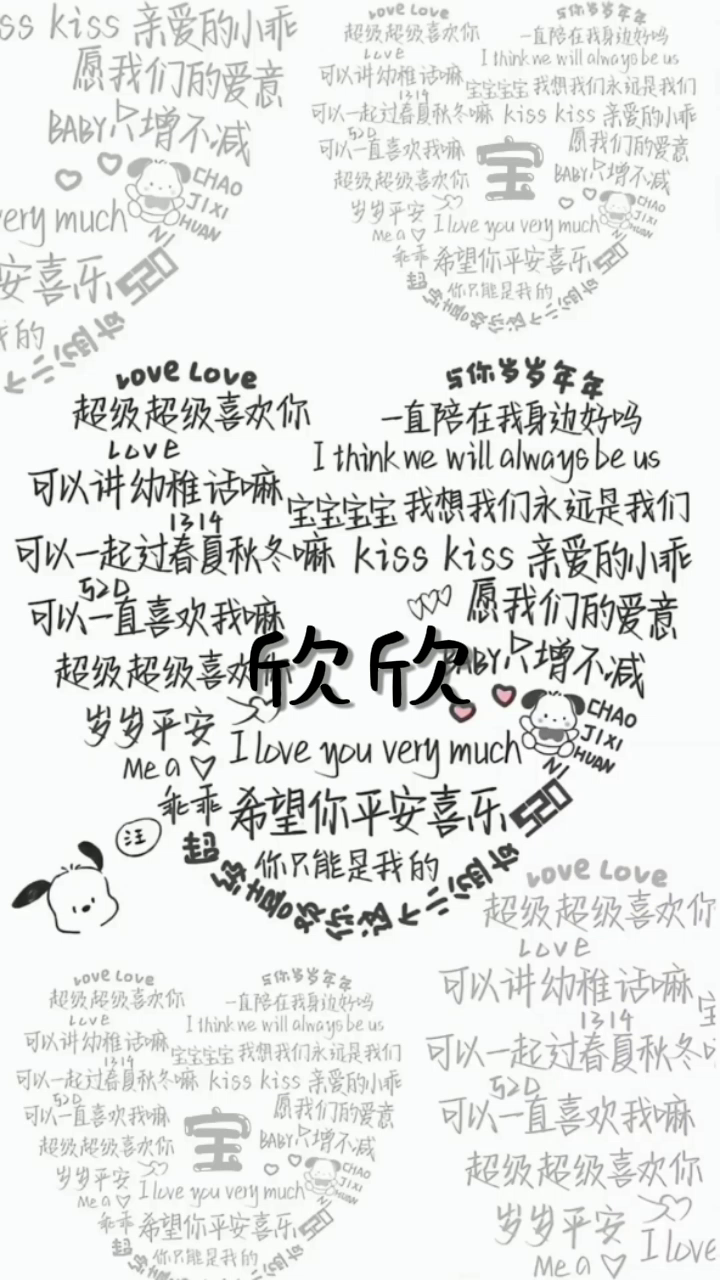 iss kiss 亲爱的小乖
愿我们的爱意
BABY只增不减
CHAO
JI XI
HUAN
NI
very much
安喜乐
520
我的
Love Love
与你岁岁年年
超级超级喜欢你
一直陪在我身边好吗
Love
I think we will always be us
可以讲幼稚话嘛
宝宝宝宝 我想我们永远是我们
1314
可以一起过春夏秋冬嘛 kiss kiss 亲爱的小乖
520
可以一直喜欢我嘛
宝
愿我们的爱意
超级超级喜欢你
BABY只增不减
岁岁平安
CHAO
JI XI
HUAN
NI
Me a
I love you very much
乖乖 希望你平安喜乐
520
你只能是我的
Love Love
与你岁岁年年
超级超级喜欢你
一直陪在我身边好吗
Love
I think we will always be us
可以讲幼稚话嘛
宝宝宝宝 我想我们永远是我们
1314
可以一起过春夏秋冬嘛 kiss kiss 亲爱的小乖
520
可以一直喜欢我嘛
愿我们的爱意
欣欣
超级超级喜欢
BABY只增不减
岁岁平安
CHAO
JI XI
HUAN
NI
Me a
I love you very much
乖乖 希望你平安喜乐
520
你只能是我的
汪
Love Love
超级超级喜欢你
Love
可以讲幼稚话嘛
宝
1314
可以一起过春夏秋冬
520
可以一直喜欢我嘛
超级超级喜欢你
岁岁平安
Me a
I love
Love Love
与你岁岁年年
超级超级喜欢你
一直陪在我身边好吗
Love
I think we will always be us
可以讲幼稚话嘛
宝宝宝宝 我想我们永远是我们
1314
可以一起过春夏秋冬嘛 kiss kiss 亲爱的小乖
520
可以一直喜欢我嘛
宝
愿我们的爱意
超级超级喜欢你
BABY只增不减
岁岁平安
CHAO
JI XI
HUAN
NI
Me a
I love you very much
乖乖 希望你平安喜乐
520
你只能是我的